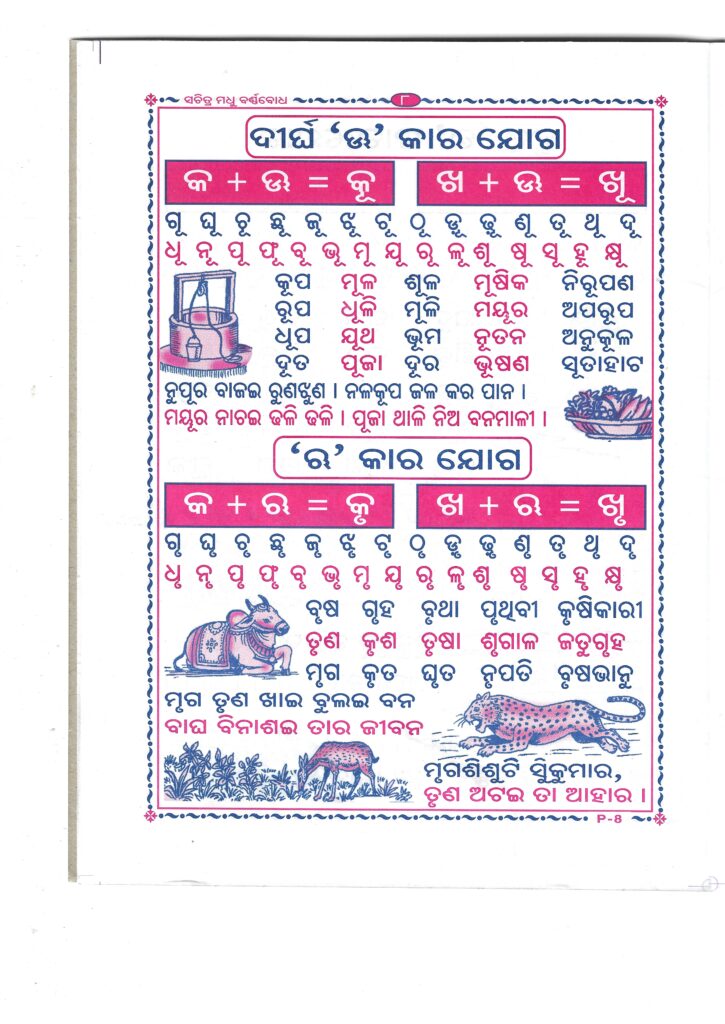 ସଚିତ୍ର ମଧୁ ବର୍ଣ୍ଣବୋଧ ୮
ଦୀର୍ଘ ‘ଊ’ କାର ଯୋଗ
କ + ଊ = କୂ ଖ + ଊ = ଖୂ
ଗୂ ଘୂ ଚୂ ଛୂ ଜୂ ଝୂ ଟୂ ଠୂ ଡ଼ୂ ଢ଼ୂ ଣୂ ତୂ ଥୂ ଦୂ
ଧୂ ନୂ ପୂ ଫୂ ବୂ ଭୂ ମୂ ଯୂ ରୂ ଳୂ ଶୂ ଷୂ ସୂ ହୂ କ୍ଷୂ
କୂପ ମୂଳ ଶୂଳ ମୂଷିକ ନିରୂପଣ
ରୂପ ଧୂଳି ମୂଳି ମୟୂର ଅପରୂପ
ଧୂପ ଯୂଥ ଭୂମ ନୂତନ ଅନୁକୂଳ
ଦୂତ ପୂଜା ଦୂର ଭୂଷଣ ସୂତାହାଟ
ନୂପୂର ବାଜଇ ରୁଣଝୁଣ । ନଳକୂପ ଜଳ କର ପାନ ।
ମୟୂର ନାଚଇ ଢଳି ଢଳି । ପୂଜା ଥାଳି ନିଅ ବନମାଳୀ ।
‘ଋ’ କାର ଯୋଗ
କ + ଋ = କୃ ଖ + ଋ = ଖୃ
ଗୃ ଘୃ ଚୃ ଛୃ ଜୃ ଝୃ ଟୃ ଠୃ ଡ଼ୃ ଢ଼ୃ ଣୃ ତୃ ଥୃ ଦୃ
ଧୃ ନୃ ପୃ ଫୃ ବୃ ଭୃ ମୃ ଯୃ ରୃ ଳୃ ଶୃ ଷୃ ସୃ ହୃ କ୍ଷୃ
ବୃଷ ଗୃହ ବୃଥା ପୃଥିବୀ କୃଷିକାରୀ
ତୃଣ କୃଶ ତୃଷା ଶୃଗାଳ ଜତୁଗୃହ
ମୃଗ କୃତ ଘୃତ ନୃପତି ବୃଷଭାନୁ
ମୃଗ ତୃଣ ଖାଇ ବୁଲଇ ବନ
ବାଘ ବିନାଶଇ ତାର ଜୀବନ
ମୃଗଶିଶୁଟି ସୁକୁମାର,
ତୃଣ ଅଟଇ ତା ଆହାର ।
P-8